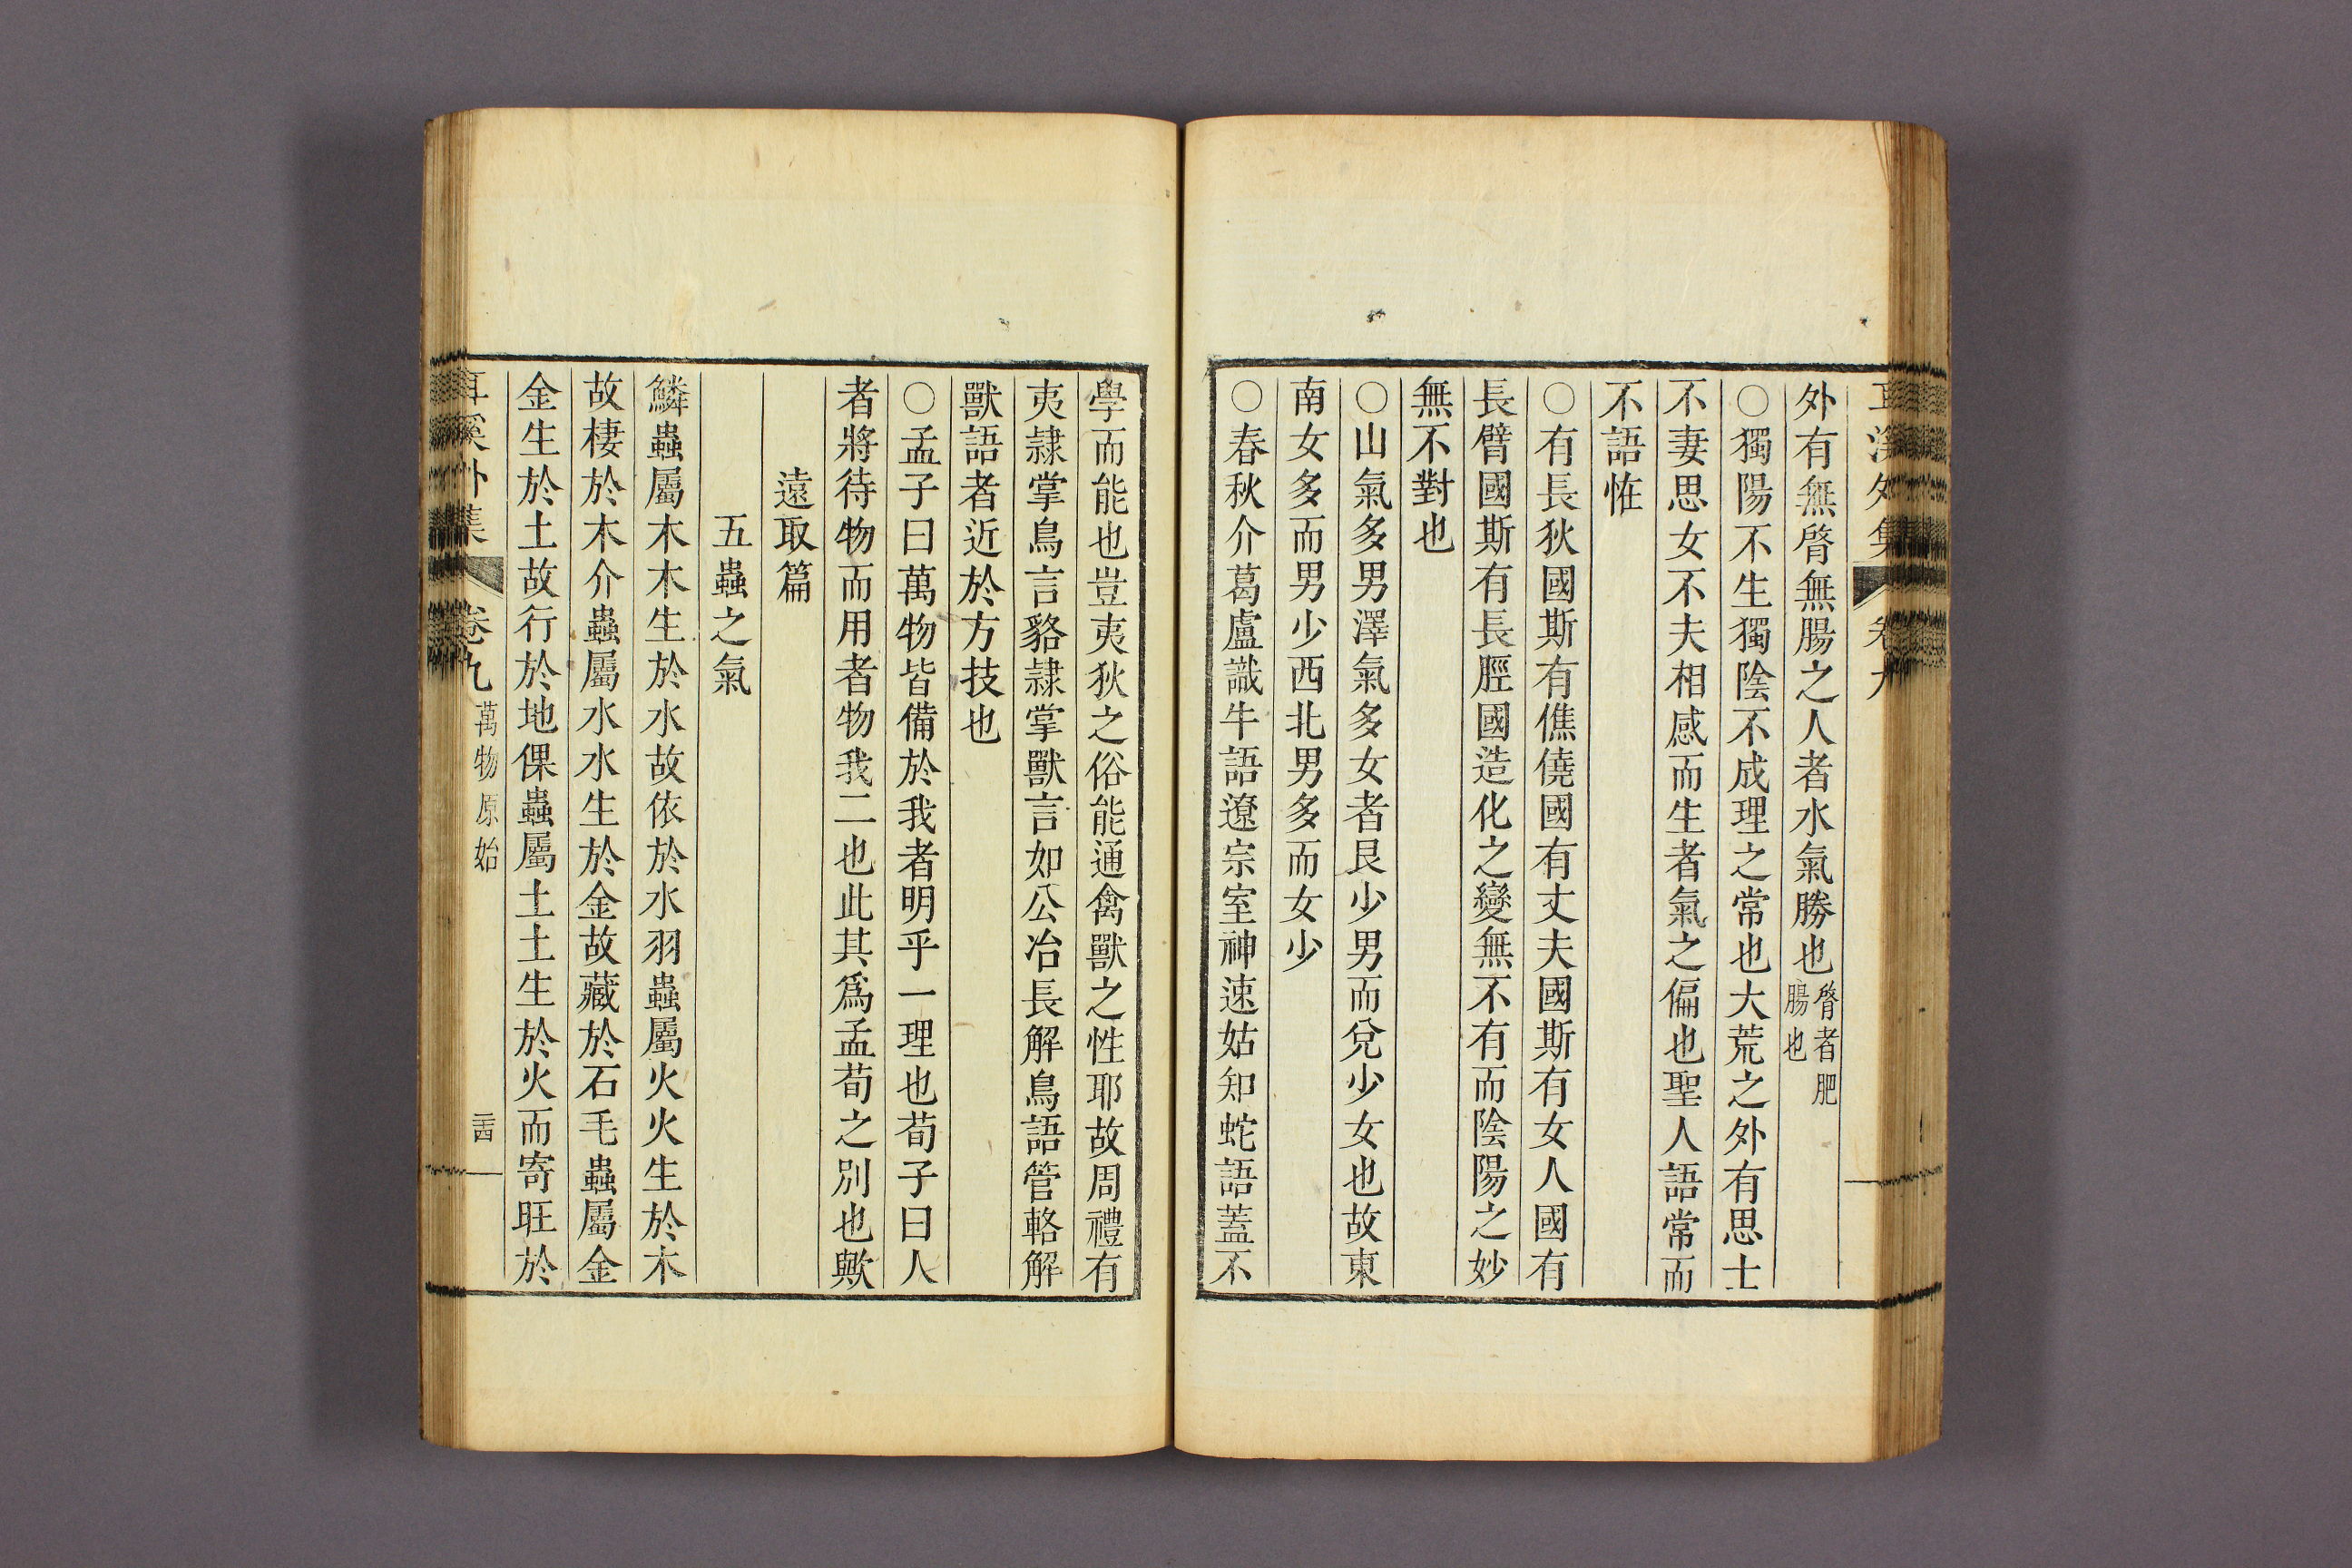 外有無膋無腸之人者水氣勝也膋者肥腸也
○獨陽不生獨陰不成理之常也大荒之外有思士
不妻思女不夫相感而生者氣之偏也聖人語常而
不語恠
○有長狄國斯有僬僥國有丈夫國斯有女人國有
長臂國斯有長脛國造化之變無不有而陰陽之妙
無不對也
○山氣多男澤氣多女者艮少男而兌少女也故東
南女多而男少西北男多而女少
○春秋介葛盧識牛語遼宗室神速姑知蛇語蓋不
學而能也豈夷狄之俗能通禽獸之性耶故周禮有
夷隷掌鳥言貉隷掌獸言如公冶長解鳥語管輅解
獸語者近於方技也
○孟子曰萬物皆備於我者明乎一理也荀子曰人
者將待物而用者物我二也此其爲孟荀之別也歟
遠取篇
五蟲之氣
鱗蟲屬木木生於水故依於水羽蟲屬火火生於木
故棲於木介蟲屬水水生於金故藏於石毛蟲屬金
金生於土故行於地倮蟲屬土土生於火而寄旺於
耳溪外集 卷九 萬物原始 二十四